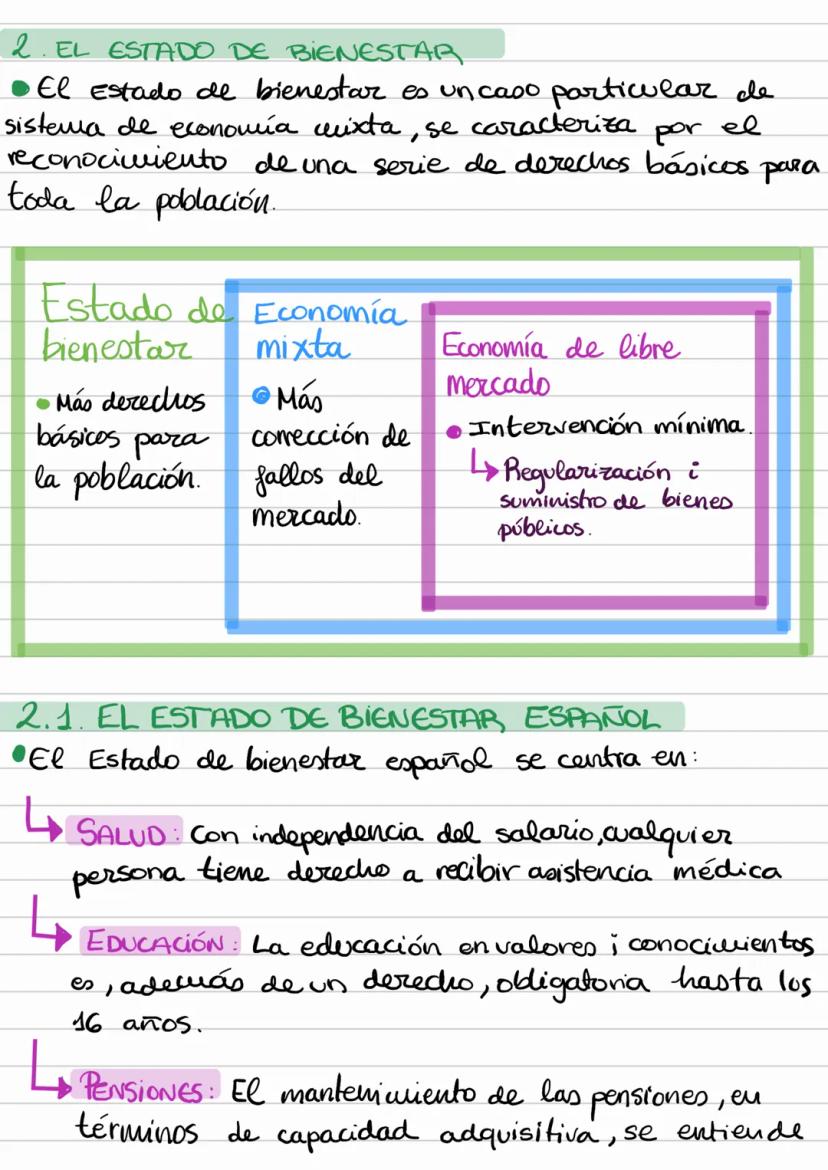 2. EL ESTADO DE BIENESTAR
• El Estado de bienestar es un caso particular de
sistema de economía mixta, se caracteriza por el
reconocimiento de una serie de derechos básicos para
toda la población.
Estado de
bienestar
• Más derechos
básicos para
la población.
Economía
mixta
• Más
corrección de
fallos del
mercado.
Economía de libre
mercado
• Intervención mínima.
↳ Regularización i
suministro de bienes
públicos.
2.1. EL ESTADO DE BIENESTAR ESPAÑOL
• El Estado de bienestar español se centra en:
↳ SALUD: Con independencia del salario, cualquier
persona tiene derecho a recibir asistencia médica
↳ EDUCACIÓN: La educación en valores i conocimientos
es, además de un derecho, obligatoria hasta los
16 años.
↳ PENSIONES: El mantenimiento de las pensiones, en
términos de capacidad adquisitiva, se entiende